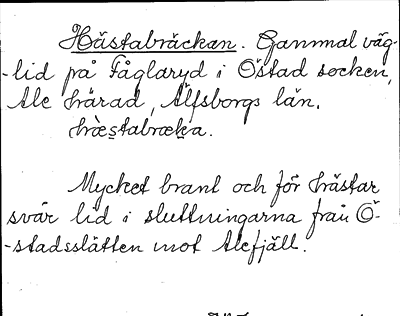 Hästabräckan. Gammal väg-
-lid på Fåglaryd i Östad socken,
Ale härad, Älfsborgs län.
hæstabræka.
Mycket brant och för hästar
svår lid i sluttningarna från Ö-
-stadsslätten mot Alefjäll.